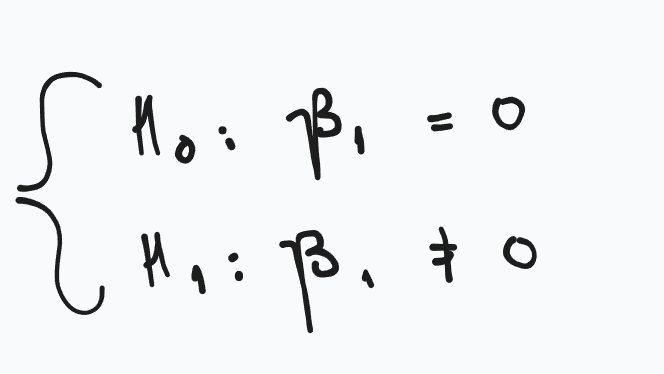 H₀: β₁ = 0
H₁: β₁ ≠ 0